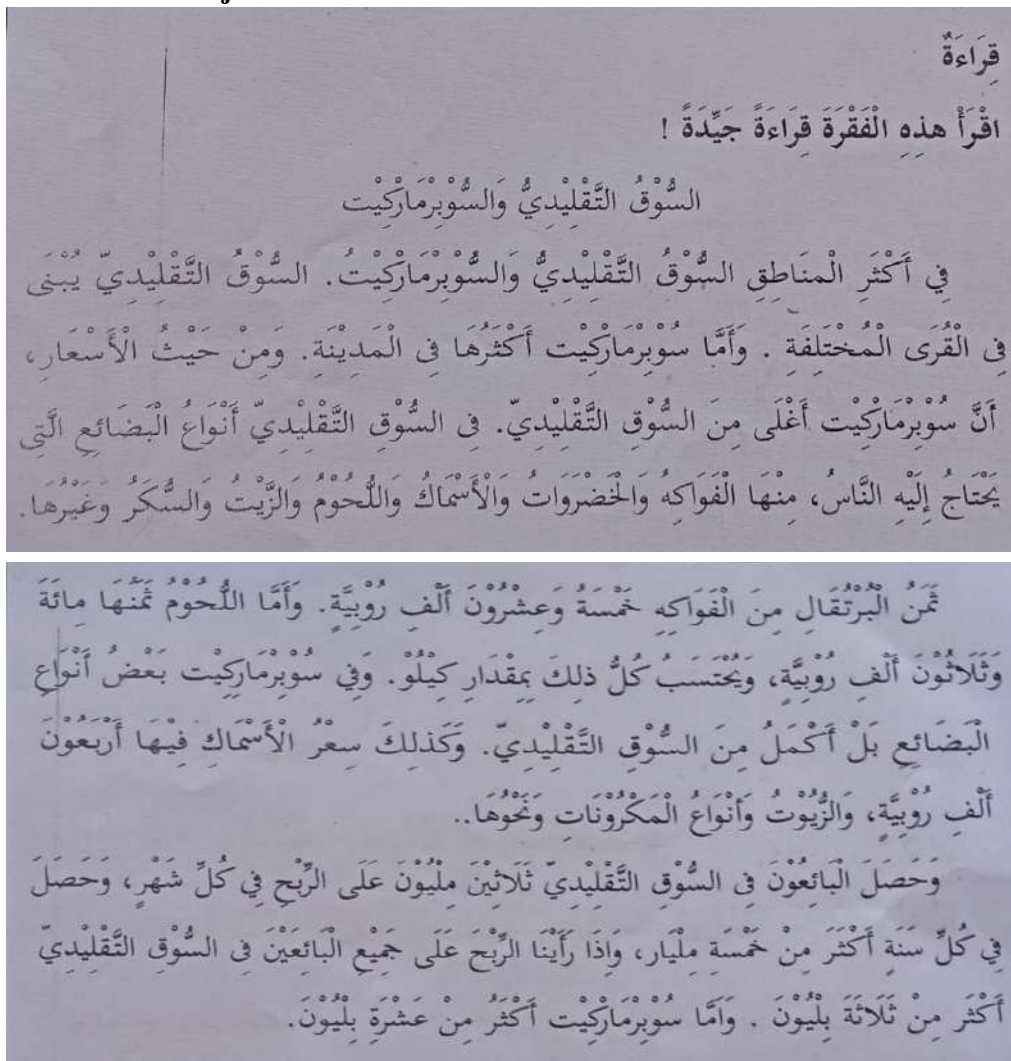 قِرَاءَةٌ
اقْرَأْ هذِهِ الْفَقْرَةَ قِرَاءَةً جَيِّدَةً !
السُّوْقُ التَّقْلِيْدِيُّ وَالسُّوْبِرْمَارْكِيْت
فِي أَكْثَرِ الْمنَاطِقِ السُّوْقُ التَّقْلِيْدِيُّ وَالسُّوْبِرْمَارْكِيْتُ. السُّوْقُ التَّقْلِيْدِيّ يُبْنَى
فِى الْقُرَى الْمُخْتَلِفَةِ . وَأَمَّا سُوْبِرْمَارْكِيْت أَكْثَرُهَا فِى الْمَدِيْنَةِ. وَمِنْ حَيْثُ الْأَسْعَارِ،
أَنَّ سُوْبِرْمَارْكِيْت أَغْلَى مِنَ السُّوْقِ التَّقْلِيْدِيّ. فِى السُّوْقِ التَّقْلِيْدِيّ أَنْوَاعُ الْبَضَائِعِ الَّتِي
يَحْتَاجُ إِلَيْهِ النَّاسُ، مِنْهَا الْفَوَاكِهُ وَالْخَضْرَوَاتُ وَالْأَسْمَاكُ وَاللُّحُوْمُ وَالزَّيْتُ وَالسُّكَرُ وَغَيْرُهَا.
ثَمَنُ الْبُرْتُقَالِ مِنَ الْفَوَاكِهِ خَمْسَةُ وَعِشْرُوْنَ أَلْفِ رُوْبِيَّةٍ. وَأَمَّا اللُّحُوْمُ ثَمَنُهَا مِائَةَ
وَثَلَاثُوْنَ أَلْفِ رُوْبِيَّةٍ، وَيُحْتَسَبُ كُلُّ ذلِكَ بِمِقْدَارِ كِيْلُوْ. وَفِي سُوْبِرْمَارِكِيْت بَعْضُ أَنْوَاعِ
الْبَضَائِعِ بَلْ أَكْمَلُ مِنَ السُّوْقِ التَّقْلِيْدِيّ. وَكَذلِكَ سِعْرُ الْأَسْمَاكِ فِيْهَا أَرْبَعُوْنَ
أَلْفِ رُوْبِيَّةٍ، وَالزُّيُوْتُ وَأَنْوَاعُ الْمَكْرُوْنَاتِ وَنَحْوُهَا..
وَحَصَلَ الْبَائِعُوْنَ فِى السُّوْقِ التَّقْلِيْدِيّ ثَلَاثِيْنَ مِلْيُوْنَ عَلَى الرِّبْحِ فِي كُلِّ شَهْرٍ، وَحَصَلَ
فِي كُلِّ سَنَةٍ أَكْثَرَ مِنْ خَمْسَةِ مِلْيَار، وَاِذَا رَأَيْنَا الرِّبْحَ عَلَى جَمِيْعِ الْبَائِعَيْنَ فِى السُّوْقِ التَّقْلِيْدِيّ
أَكْثَر مِنْ ثَلَاثَةَ بِلْيُوْنَ . وَاَمَّا سُوْبِرْمَارْكِيْت أَكْثَرُ مِنْ عَشْرَةِ بِلْيُوْنَ.